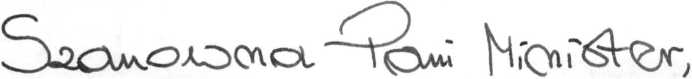 Szanowna Pani Minister,